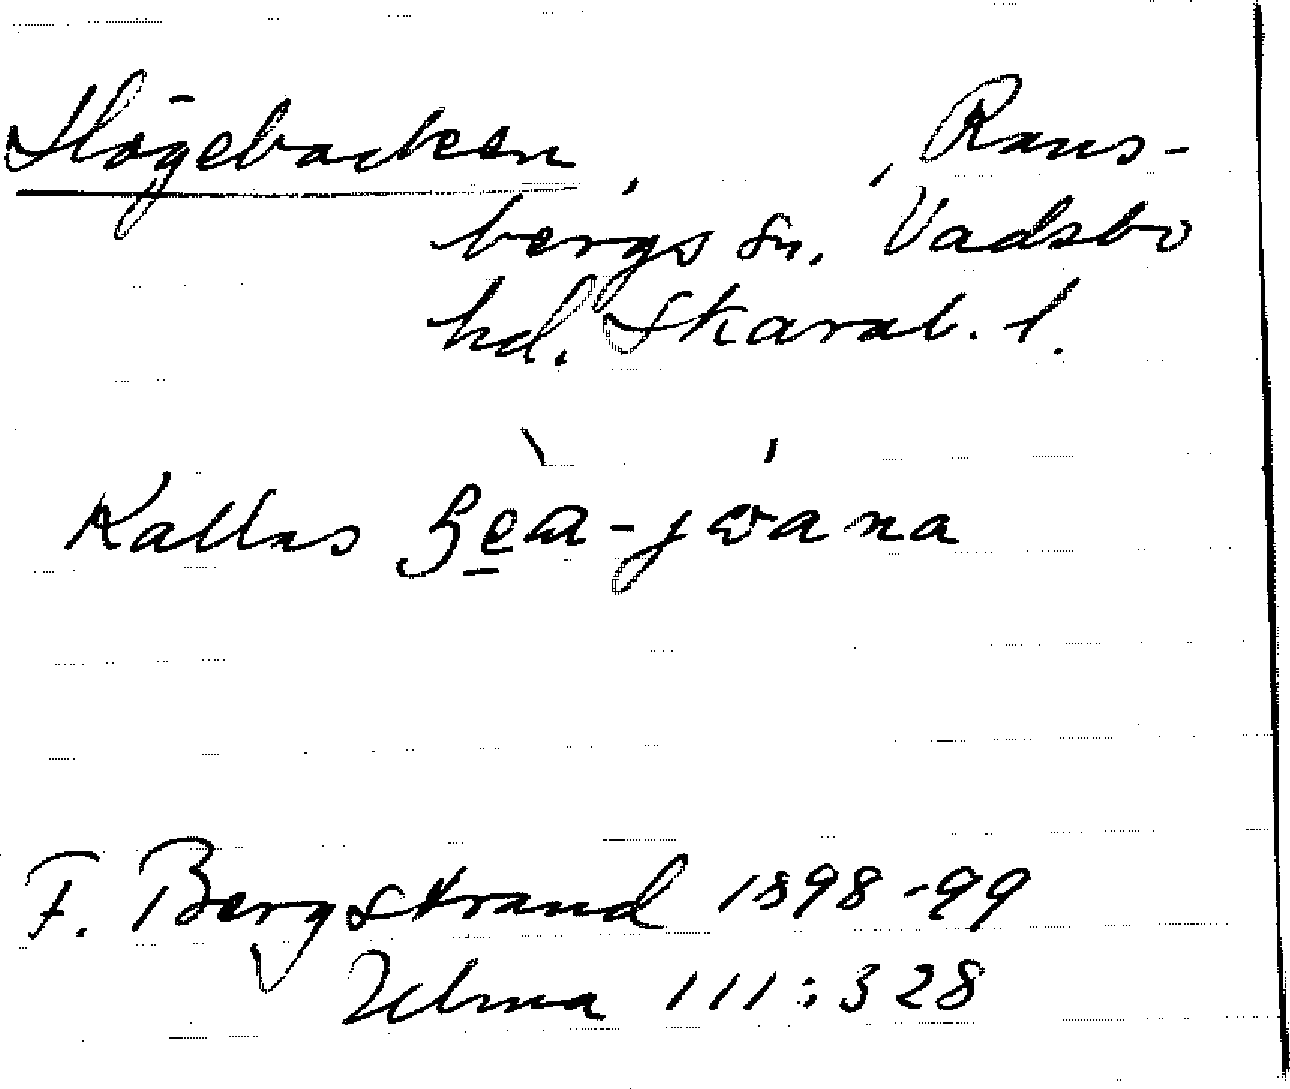 Högebacken, Rans-
bergs sn, Vadsbo
hd. Skarab. l.
Kallas
F. Bergstrand 1898-99
Ulma 111:328